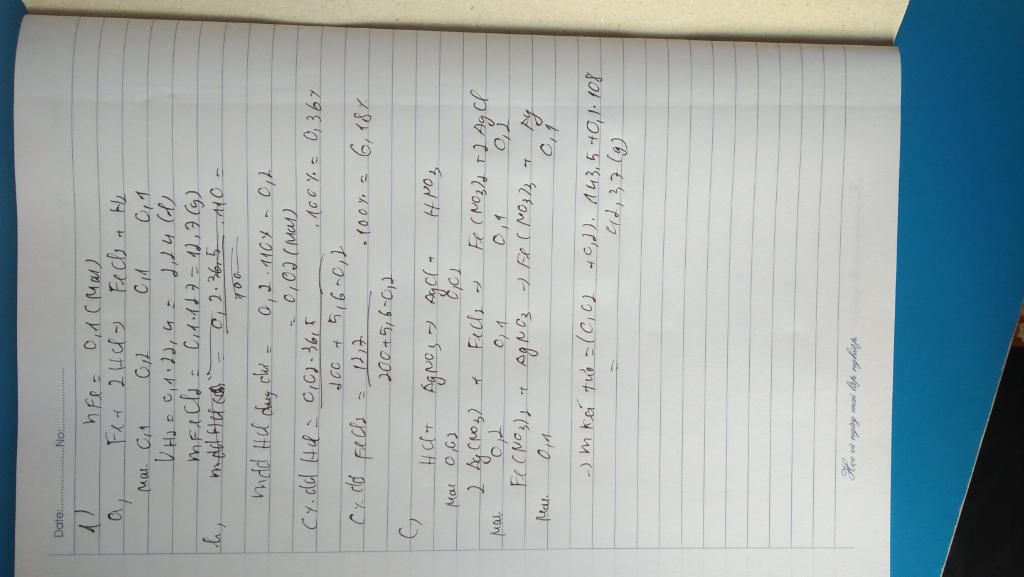 Date:............... No:...............
1) nFe = 0,1 (mol)
a, Fe + 2HCl → FeCl2 + H2
mol 0,1 0,2 0,1 0,1
VH2 = 0,1.22,4 = 2,24 (l)
mFeCl2 = 0,1.127 = 12,7 (g)
b, mdd HCl = 0,2.36,5 .110 =
100
mdd HCl = 0,2.110% = 0,2
= 0,02 (mol)
C% dd HCl = 0,02.36,5 .100% = 0,36%
200 + 5,6 - 0,2
C% dd FeCl2 = 12,7 .100% = 6,18%
200 + 5,6 - 0,2
c, HCl + AgNO3 → AgCl + HNO3
mol 0,02 0,02
2 Ag(NO3) + FeCl2 → Fe(NO3)2 + 2AgCl
mol 0,2 0,1 0,1 0,2
Fe(NO3)2 + AgNO3 → Fe(NO3)3 + Ag
mol 0,1 0,1
→ m kết tủa = (0,02 + 0,2). 143,5 + 0,1.108
= 42,37 (g)
Học vì ngày mai lập nghiệp